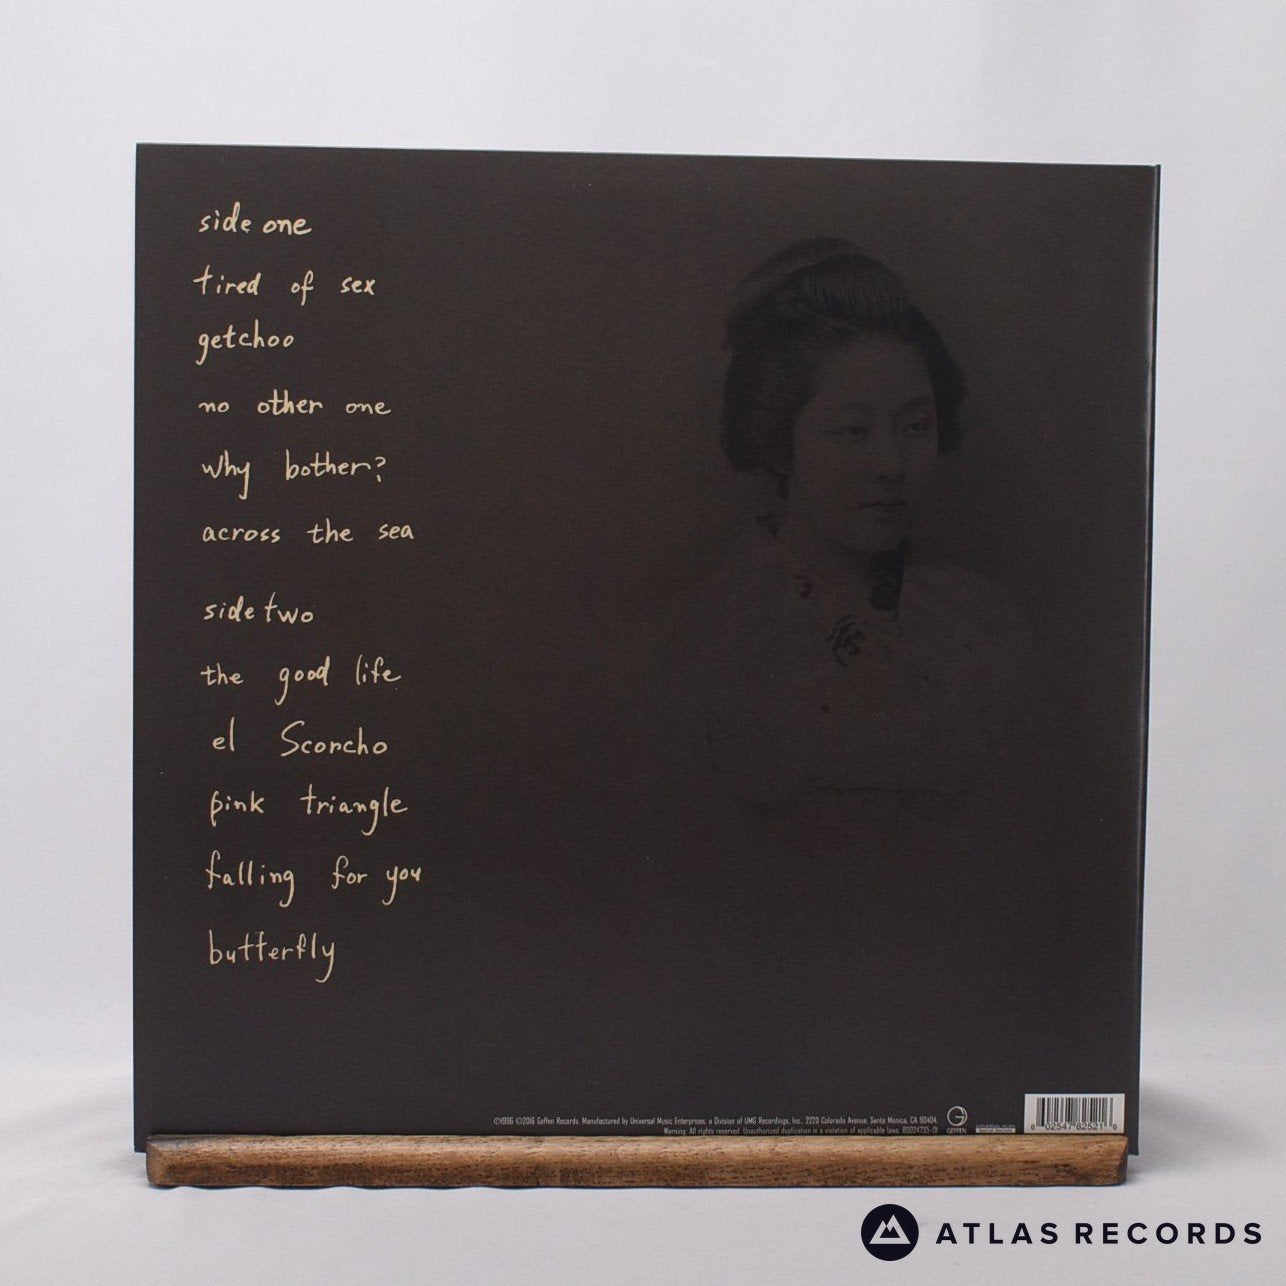 side one
tired of sex
getchoo
no other one
why bother?
across the sea
side two
the good life
el Scorcho
pink triangle
falling for you
butterfly
©1996 ©2016 Geffen Records. Manufactured by Universal Music Enterprises, a Division of UMG Recordings, Inc., 2220 Colorado Avenue, Santa Monica, CA 90404.
Warning: All rights reserved. Unauthorized duplication is a violation of applicable laws.
GEFFEN
6 02547 82521 6
ATLAS RECORDS